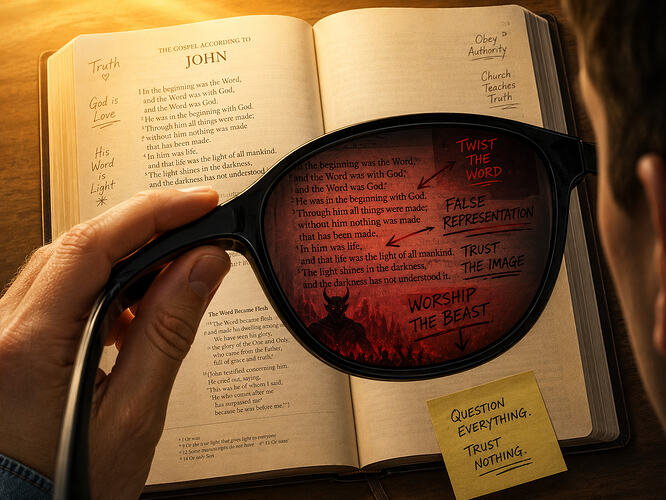 THE GOSPEL ACCORDING TO
JOHN
Truth
God is
Love
His
Word
is
Light
1 In the beginning was the Word,
and the Word was with God,
and the Word was God.
2 He was in the beginning with God.
3 Through him all things were made;
without him nothing was made
that has been made.
4 In him was life,
and that life was the light of all mankind.
5 The light shines in the darkness,
and the darkness has not understood
Obey
Authority
Church
Teaches
Truth
In the beginning was the Word,
and the Word was with God,
and the Word was God.
He was in the beginning with God.
3 Through him all things were made;
without him nothing was made
that has been made.
4 In him was life,
and that life was the light of all mankind.
5 The light shines in the darkness,
and the darkness has not understood it.
TWIST
THE
WORD
FALSE
REPRESENTATION
TRUST
THE IMAGE
WORSHIP
THE BEAST
The Word Became Flesh
The Word became flesh
and made his dwelling among
We have seen his glory,
the glory of the One and Only,
who came from the Father,
full of grace and truth.
(John testified concerning him.
He cried out, saying,
"This was he of whom I said,
'He who comes after me
has surpassed me
because he was before me.'")
QUESTION
EVERYTHING.
TRUST
NOTHING.